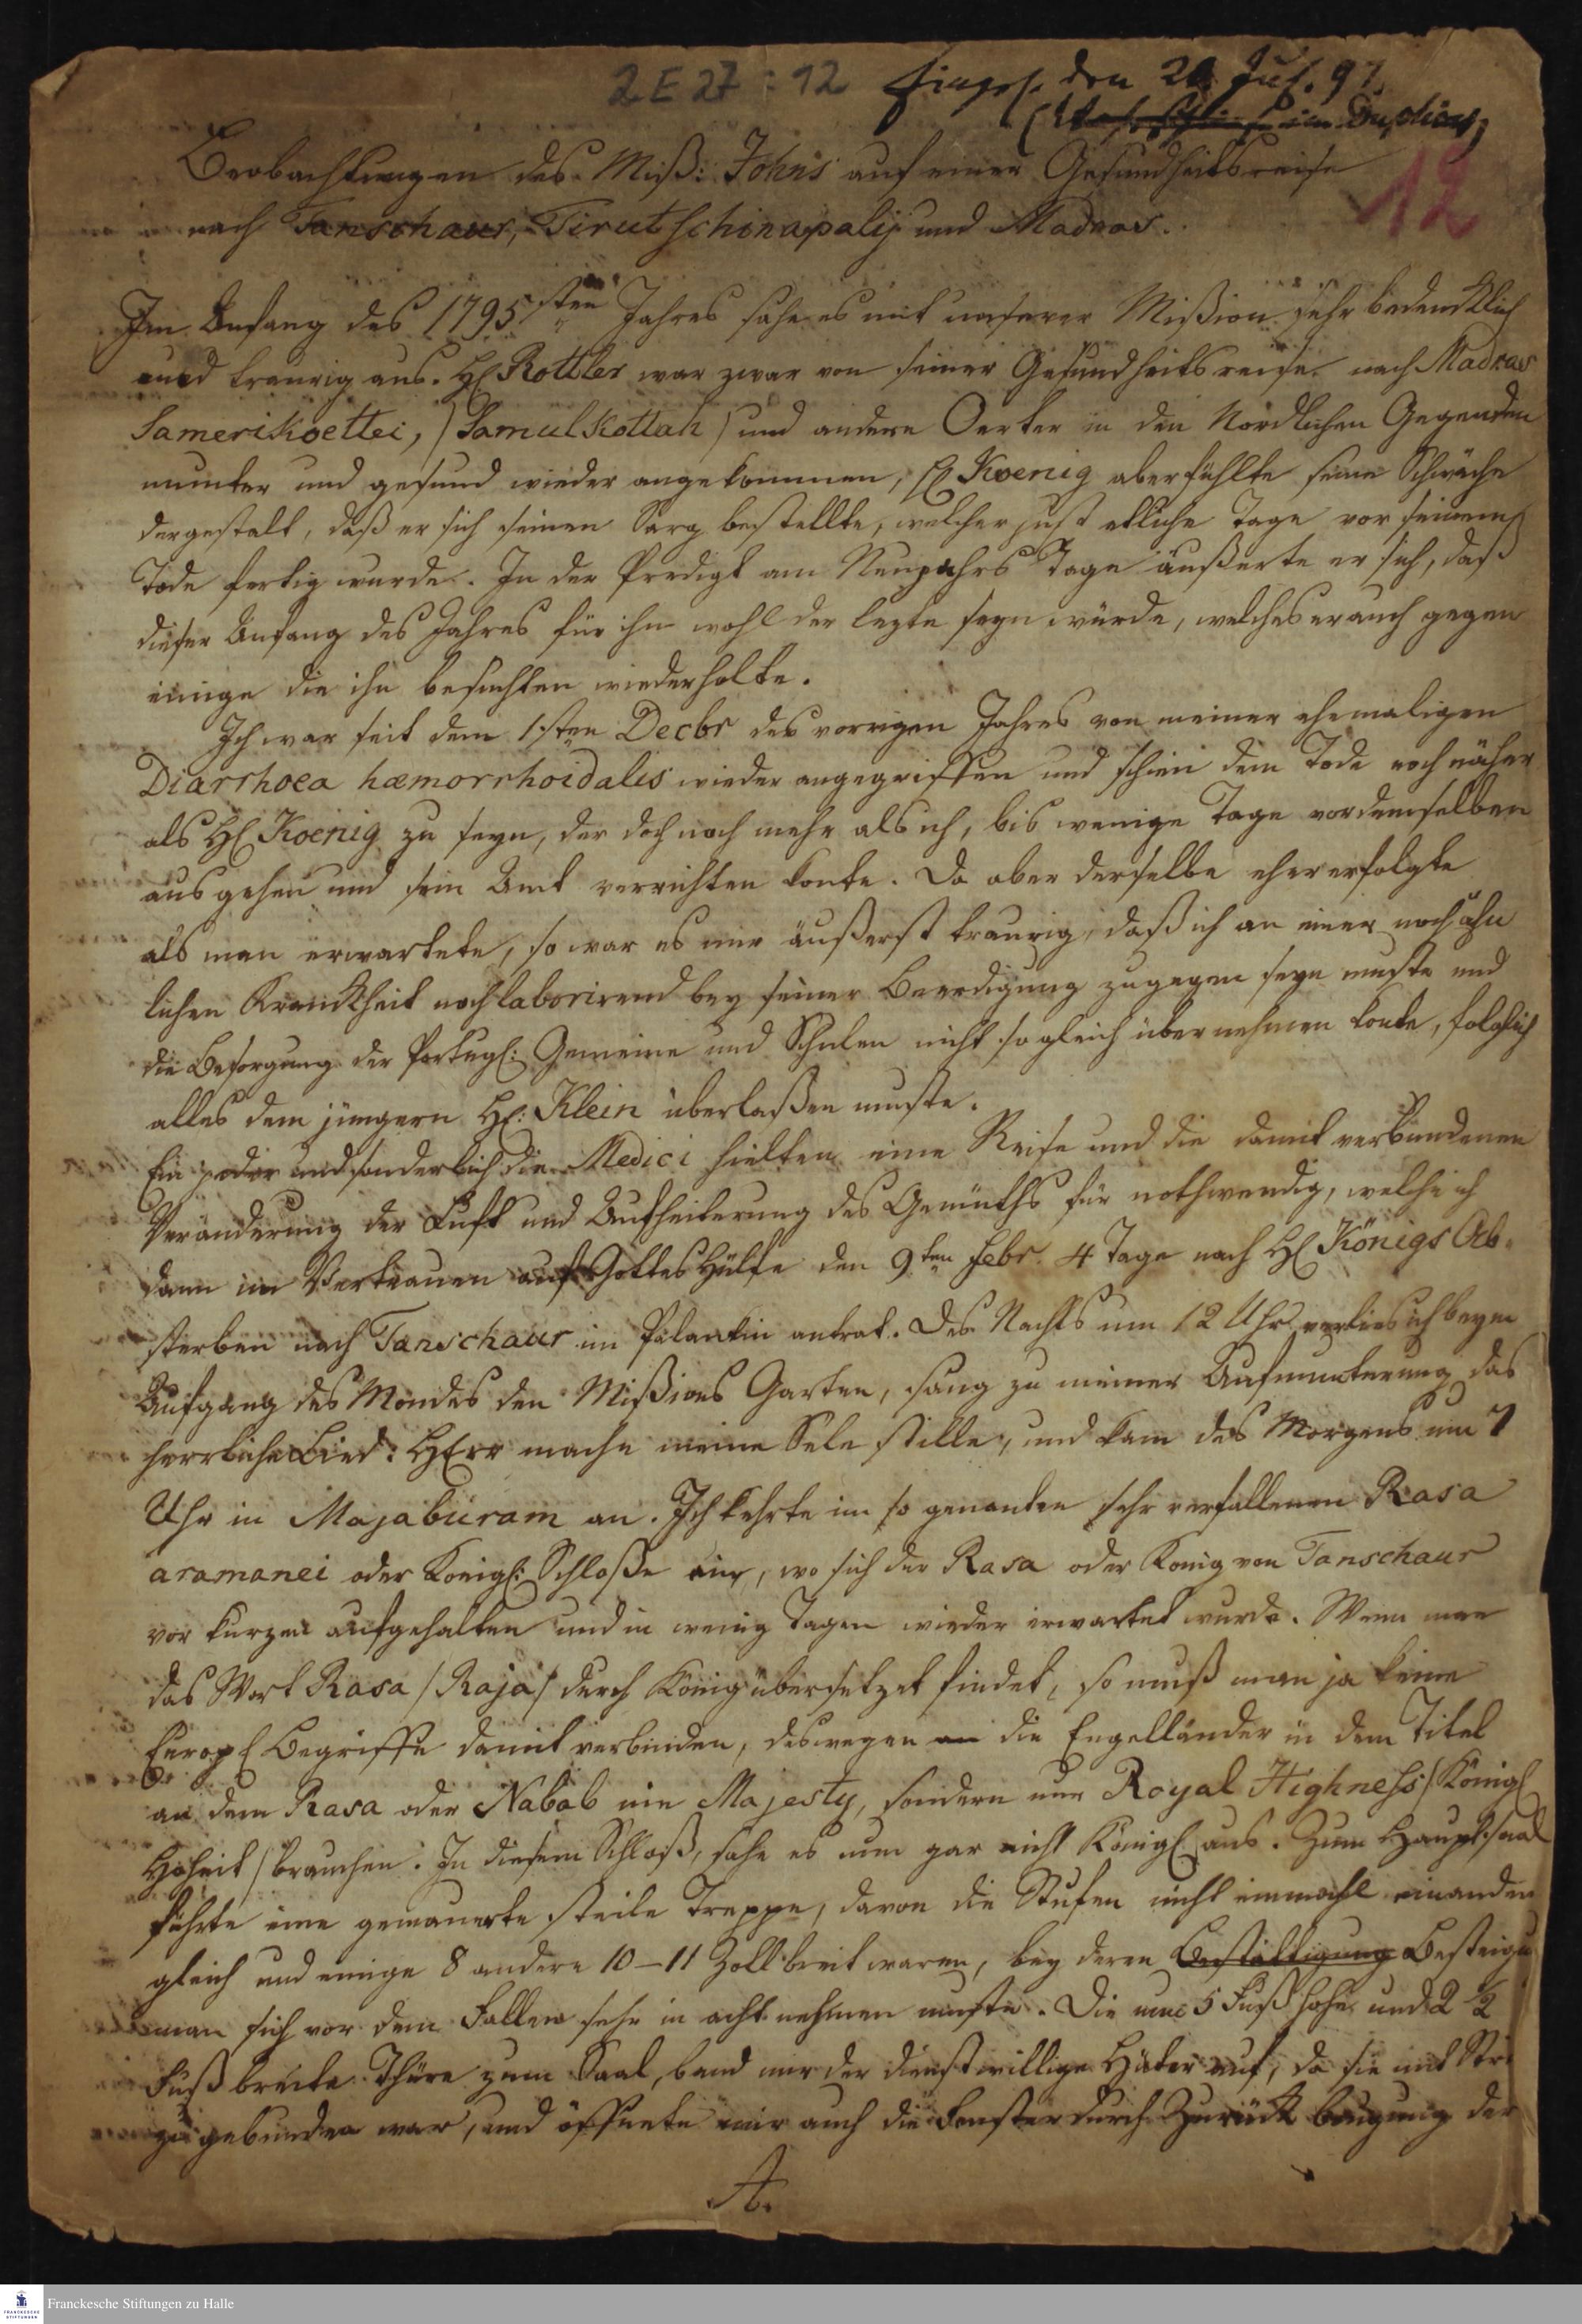 2 E 27 : 12 den 20 Jul. 97.
12
Beobachtungen des Miß: Johns auf einer Gesundheitsreise
nach Tanschaur, Tirutschinapalij und Madras.
Im Anfang des 1795sten Jahres sahe es mit unserer Mißion sehr bedencklich
und traurig aus. H Rottler war zwar von seiner Gesundheitsreise nach Madras
Samerikoettei, / Samulkottah / und andere Oerter in den Nordlichen Gegenden
munter und gesund wieder angekommen, H Koenig aber fühlte seine Schwäche
dergestalt, daß er sich seinen Sarg bestellte, welcher just etliche Tage vor seinem
Tode fertig wurde. In der Predigt am Neujahrs Tage äußerte er sich, daß
dieser Anfang des Jahres für ihn wohl der lezte seyn würde, welches er auch gegen
einige die ihn besuchten wiederholte.
Ich war seit dem 1sten Decbr des vorigen Jahres von meiner ehemaligen
Diarrhoea hæmorrhoidalis wieder angegriffen und schien dem Tode noch näher
als H Koenig zu seyn, der doch noch mehr als ich, bis wenige Tage vor demselben
ausgehen und sein Amt verrichten konte. Da aber derselbe eher erfolgte
als man erwartete, so war es mir äußerst traurig, daß ich an einer noch ähn
lichen Kranckheit noch laborirend bey seiner Beerdigung zugegen seyn muste und
die Besorgung der Portugl: Gemeine und Schulen nicht so gleich übernehmen konte, folglich
alles dem jüngern H: Klein überlaßen muste.
Ein jeder und sonderlich die Medici hielten eine Reise und die damit verbundenen
Veränderung der Luft und Aufheiterung des Gemüths für nothwendig, welche ich
dann im Vertrauen auf Gottes Hülfe den 9ten Febr. 4 Tage nach H Königs Ab-
sterben nach Tanschaur im Palankin antrat. Des Nachts um 12 Uhr verlies ich beym
Aufgang des Mondes den Mißions Garten, sang zu meiner Aufmunterung das
herrliche Lied: HErr mache meine Sele stille, und kam des Morgens um 7
Uhr in Majaburam an. Ich kehrte im so genanten sehr verfallenen Rasa
aramanei oder Königl: Schloße ein, wo sich der Rasa oder König von Tanschaur
vor kurzem aufgehalten und in wenig Tagen wieder erwartet wurde. Wenn man
das Wort Rasa / Raja / durch König übersetzet findet, so muß man ja keine
Europ Begriffe damit verbinden, deswegen die Engelländer in dem Titel
an dem Rasa oder Nabab nie Majesty, sondern nur Royal Highness / Königl
Hoheit / brauchen. In diesem Schloß, sahe es nun gar nicht Königl aus. Zum Hauptsaal
führte eine gemauerte steile Treppe, davon die Stufen nicht einmahl einander
gleich und einige 8 andere 10–11 Zoll breit waren, bey deren Bestättigung Besteigu
man sich vor dem Fallen sehr in acht nehmen muste. Die nur 5 Fuß hohe und 2 ½
Fuß breite Thüre zum Saal, band mir der dienstwillige Hüter auf, da sie mit Stri
zugebunden war, und öffnete mir auch die Fenster durch Zurück beugung der
A.
FRANCKESCHE STIFTUNGEN
Franckesche Stiftungen zu Halle